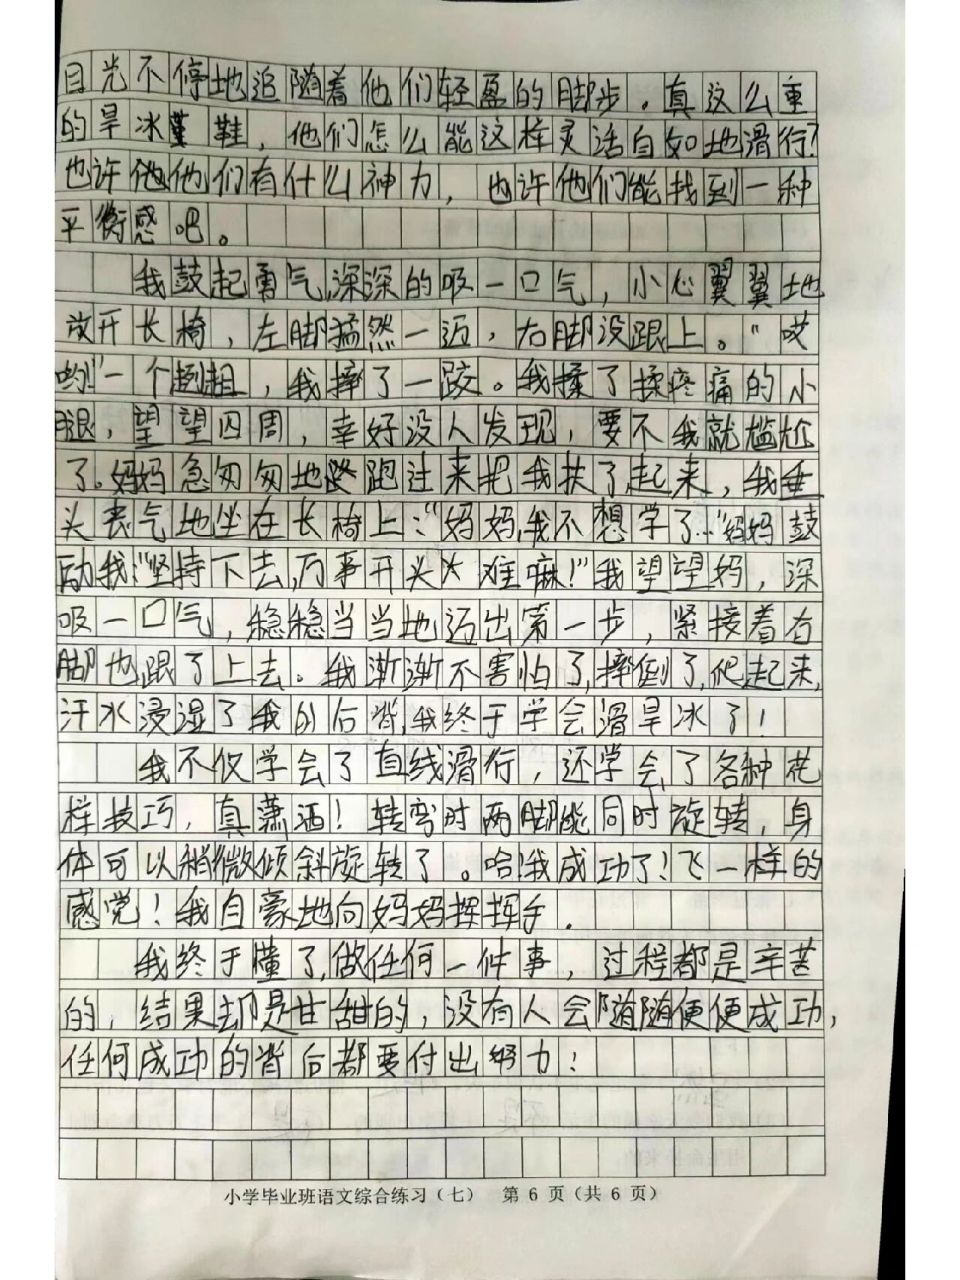 目光不停地追随着他们轻盈的脚步。真这么重
的旱冰鞋，他们怎么能这样灵活自如地滑行？
也许他他们有什么神力，也许他们能找到一种
平衡感吧。
我鼓起勇气，深深的吸一口气，小心翼翼地
放开长椅，左脚猛然一迈，右脚没跟上。“哎
哟！”一个趔趄，我摔了一跤。我揉了揉疼痛的小
腿，望望四周，幸好没人发现，要不我就尴尬
了。妈妈急匆匆地跑过来把我扶了起来，我垂
头丧气地坐在长椅上：“妈妈，我不想学了。”妈妈鼓
励我：“坚持下去，万事开头难嘛！”我望望妈，深
吸一口气，稳稳当当地迈出第一步，紧接着右
脚也跟了上去。我渐渐不害怕了，摔倒了，爬起来，
汗水浸湿了我的后背，我终于学会滑旱冰了！
我不仅学会了直线滑行，还学会了各种花
样技巧，真潇洒！转弯时两脚能同时旋转，身
体可以稍微倾斜旋转了。哈！我成功了！飞一样的
感觉！我自豪地向妈妈挥挥手．
我终于懂了，做任何一件事，过程都是辛苦
的，结果却是甘甜的，没有人会随随便便成功，
任何成功的背后都要付出努力！
小学毕业班语文综合练习（七） 第 6 页（共 6 页）